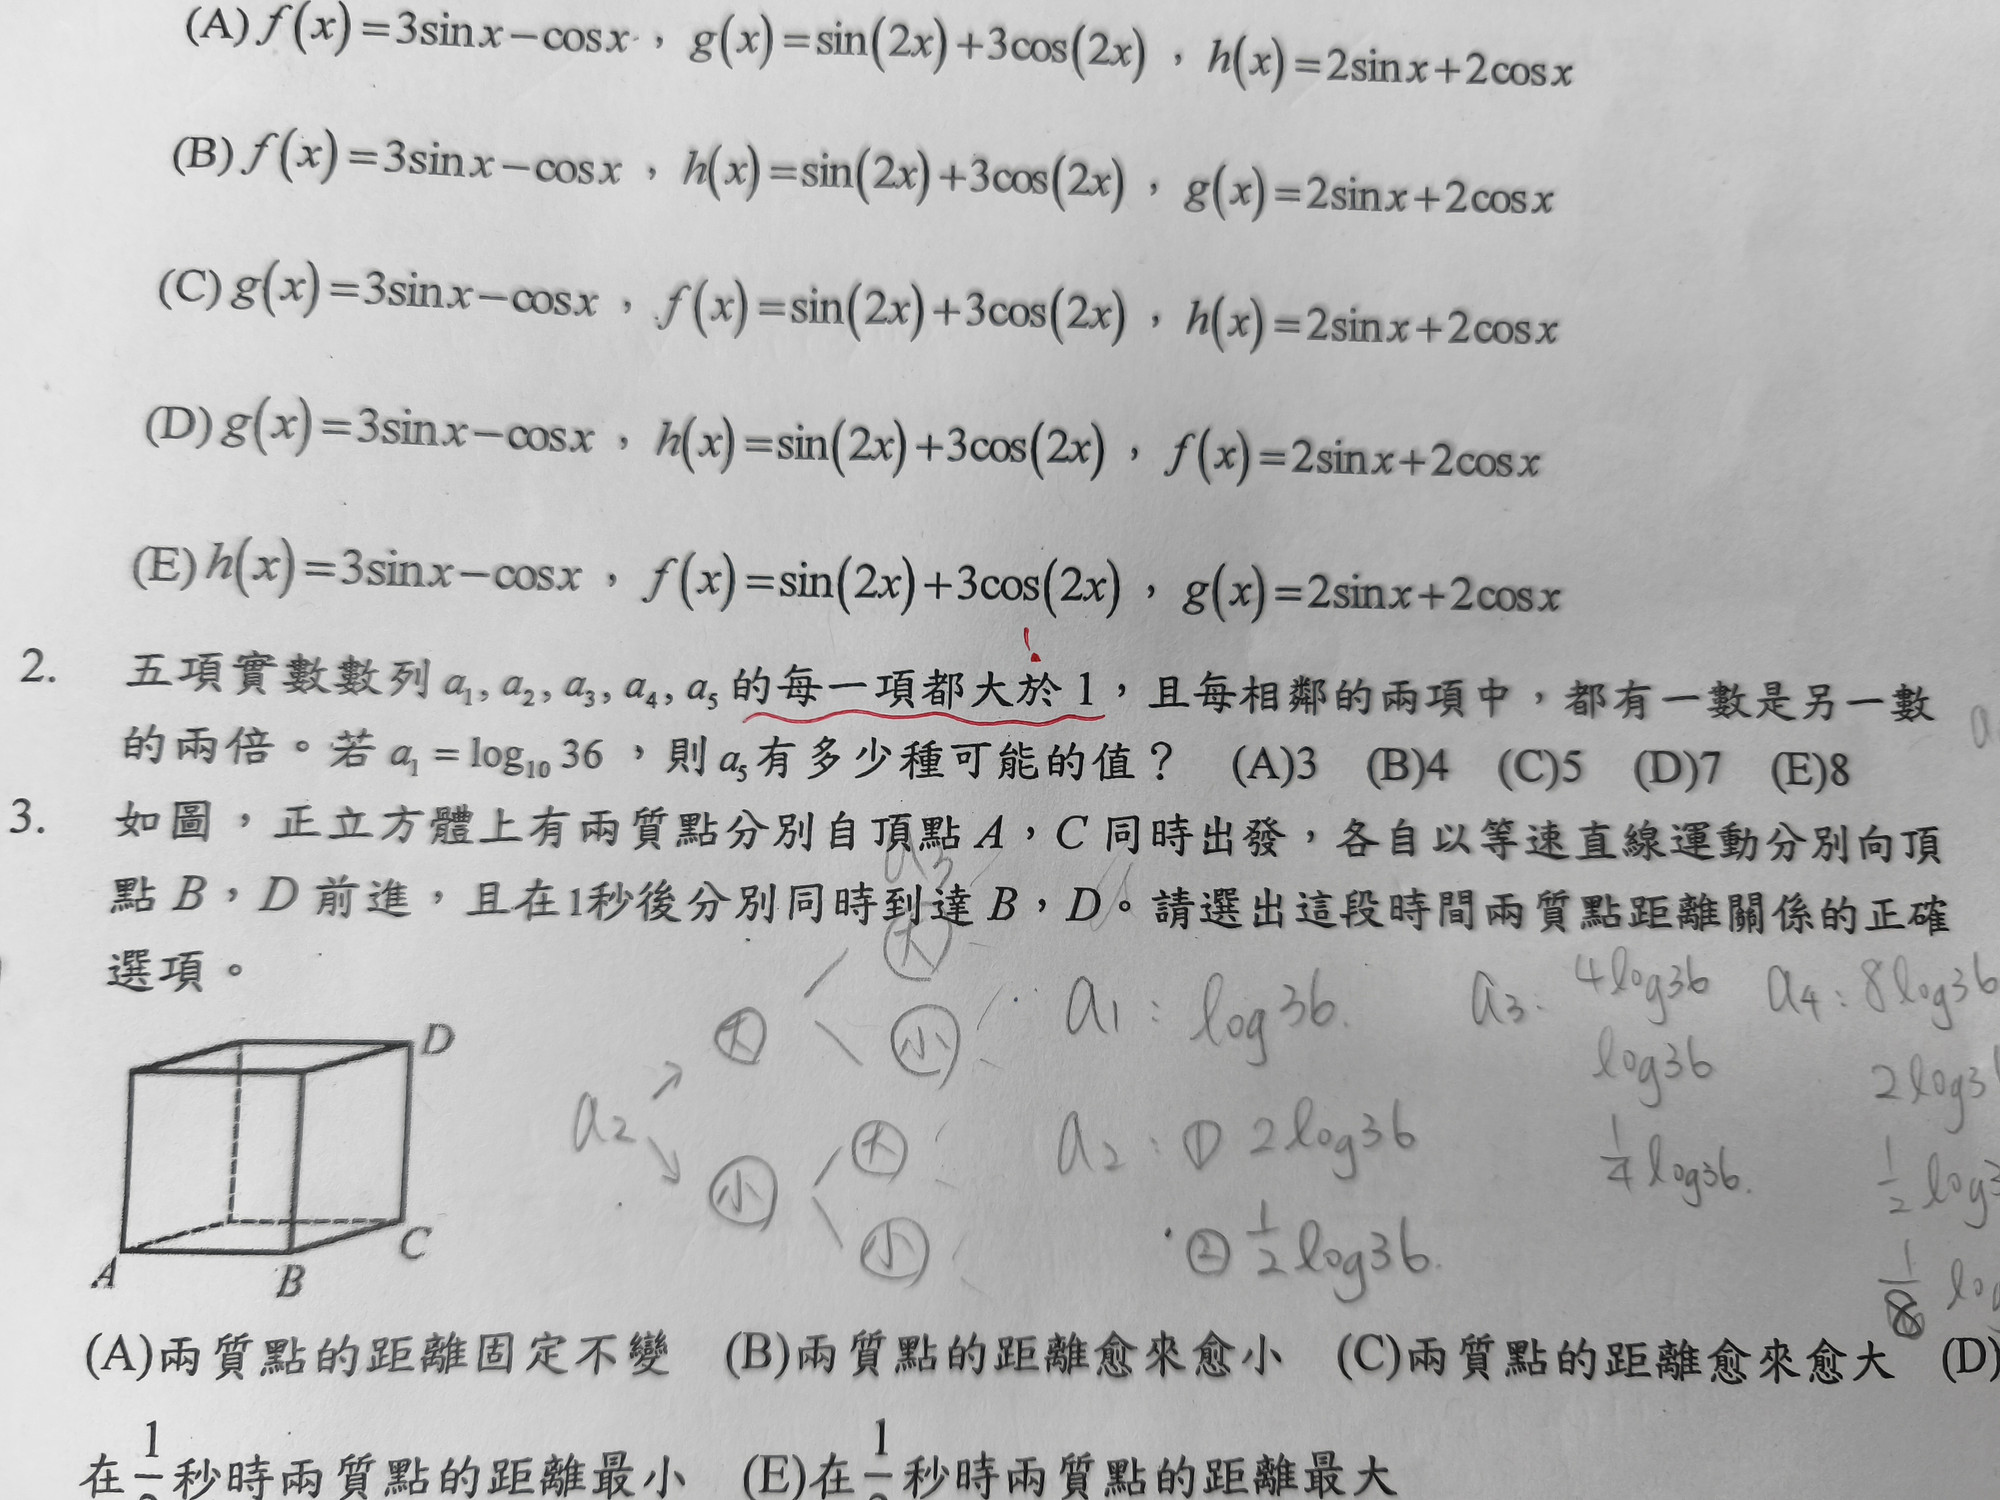 (A) f(x)=3sinx−cosx，g(x)=sin(2x)+3cos(2x)，h(x)=2sinx+2cosx
(B) f(x)=3sinx−cosx，h(x)=sin(2x)+3cos(2x)，g(x)=2sinx+2cosx
(C) g(x)=3sinx−cosx，f(x)=sin(2x)+3cos(2x)，h(x)=2sinx+2cosx
(D) g(x)=3sinx−cosx，h(x)=sin(2x)+3cos(2x)，f(x)=2sinx+2cosx
(E) h(x)=3sinx−cosx，f(x)=sin(2x)+3cos(2x)，g(x)=2sinx+2cosx
!
2. 五項實數數列 a₁, a₂, a₃, a₄, a₅ 的每一項都大於 1，且每相鄰的兩項中，都有一數是另一數
的兩倍。若 a₁ = log₁₀ 36，則 a₅ 有多少種可能的值？ (A)3 (B)4 (C)5 (D)7 (E)8
3. 如圖，正立方體上有兩質點分別自頂點 A，C 同時出發，各自以等速直線運動分別向頂
點 B，D 前進，且在1秒後分別同時到達 B，D。請選出這段時間兩質點距離關係的正確
選項。
D
C
A
B
a₃
大
大
小
a₂
大
小
小
a₁: log36.
a₂: ① 2log36
② 1/2 log36.
a₃: 4log36
log36
1/4 log36.
a₄: 8log36
2log3
1/2 log3
1/8 log
(A)兩質點的距離固定不變 (B)兩質點的距離愈來愈小 (C)兩質點的距離愈來愈大 (D)
在 1/ 秒時兩質點的距離最小 (E)在 1/ 秒時兩質點的距離最大